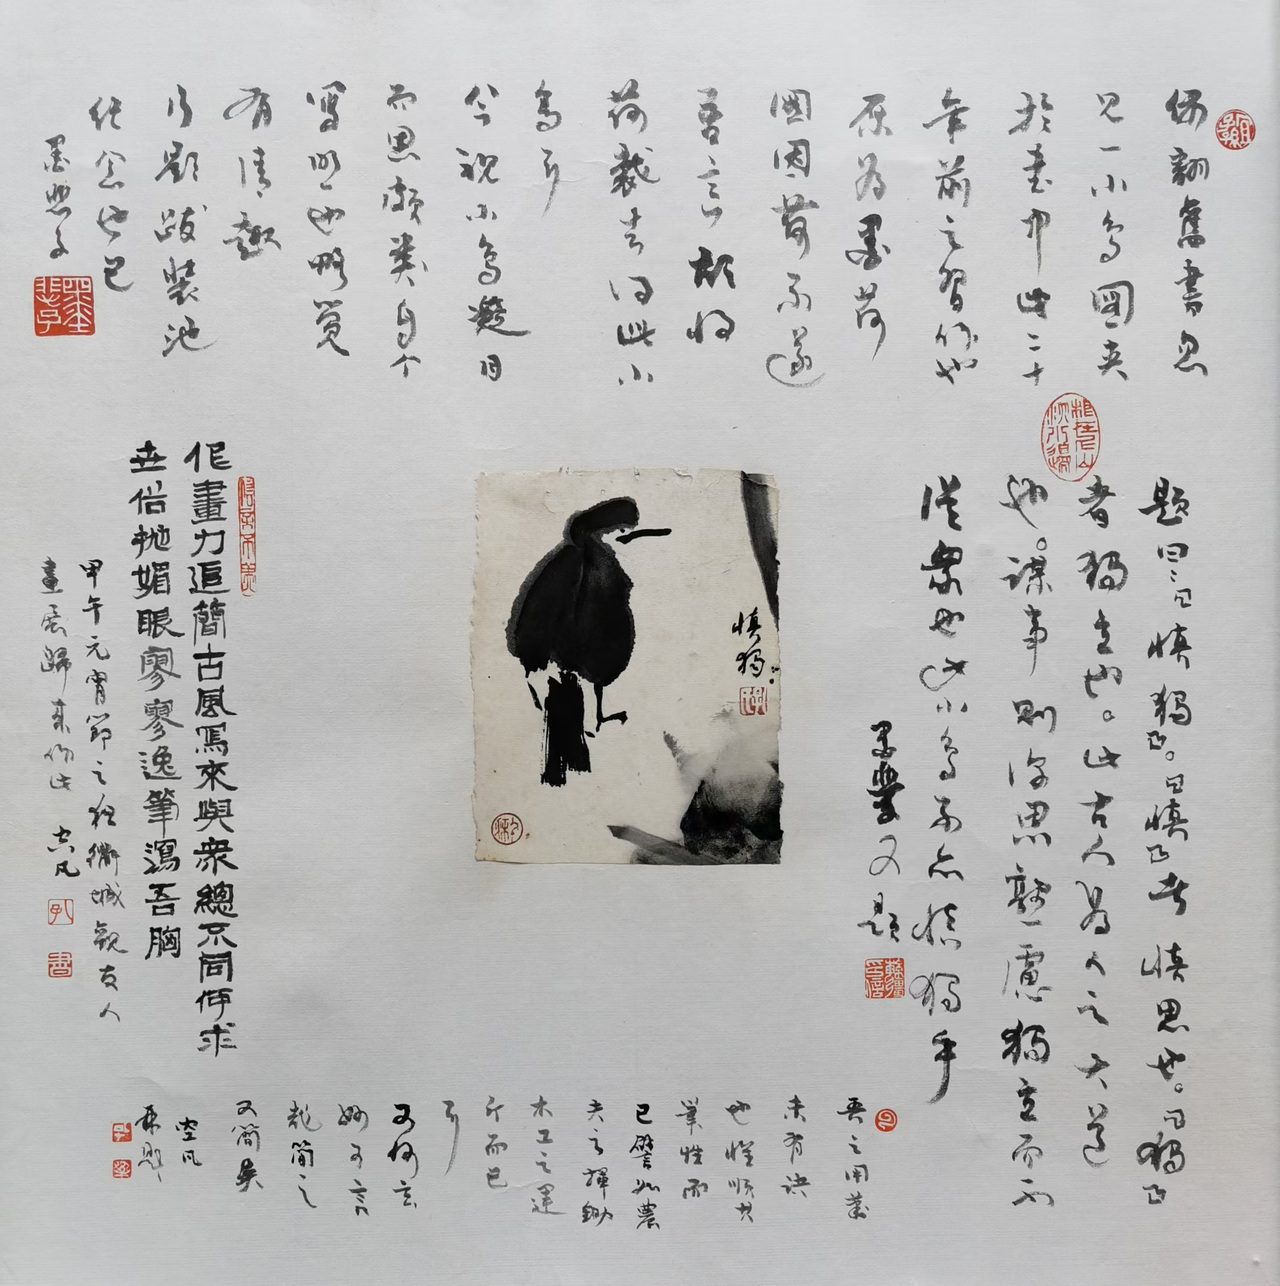 偶翻舊書忽
見一小鳥圖夾
於書中此二十
年前之習作也
原為墨荷
圖因荷不遂
意之故將
荷裁去因此小
鳥耳
今視小鳥凝目
而思頗类自个
寫照也略覓
有清趣
片影跋裝池
紀念也已
題曰曰慎獨曰慎曰者慎思也曰獨曰
者獨立也。此古人為人之大道
也。謀事則深思熟慮獨立而不
從衆也此小鳥不亦慎獨乎
墨
又題
慎獨
作畫力追簡古風寫來與衆總不同何求
世俗拋媚眼寥寥逸筆瀉吾胸
甲午元宵節之夜衢城觀友人
畫展歸來作此 空凡
吾之用筆
未有訣
也惟順其
筆性而
已譬如農
夫之揮鋤
木工之運
斤而已
耳
又何玄
妙可言
哉簡之
又簡矣
空凡
再題